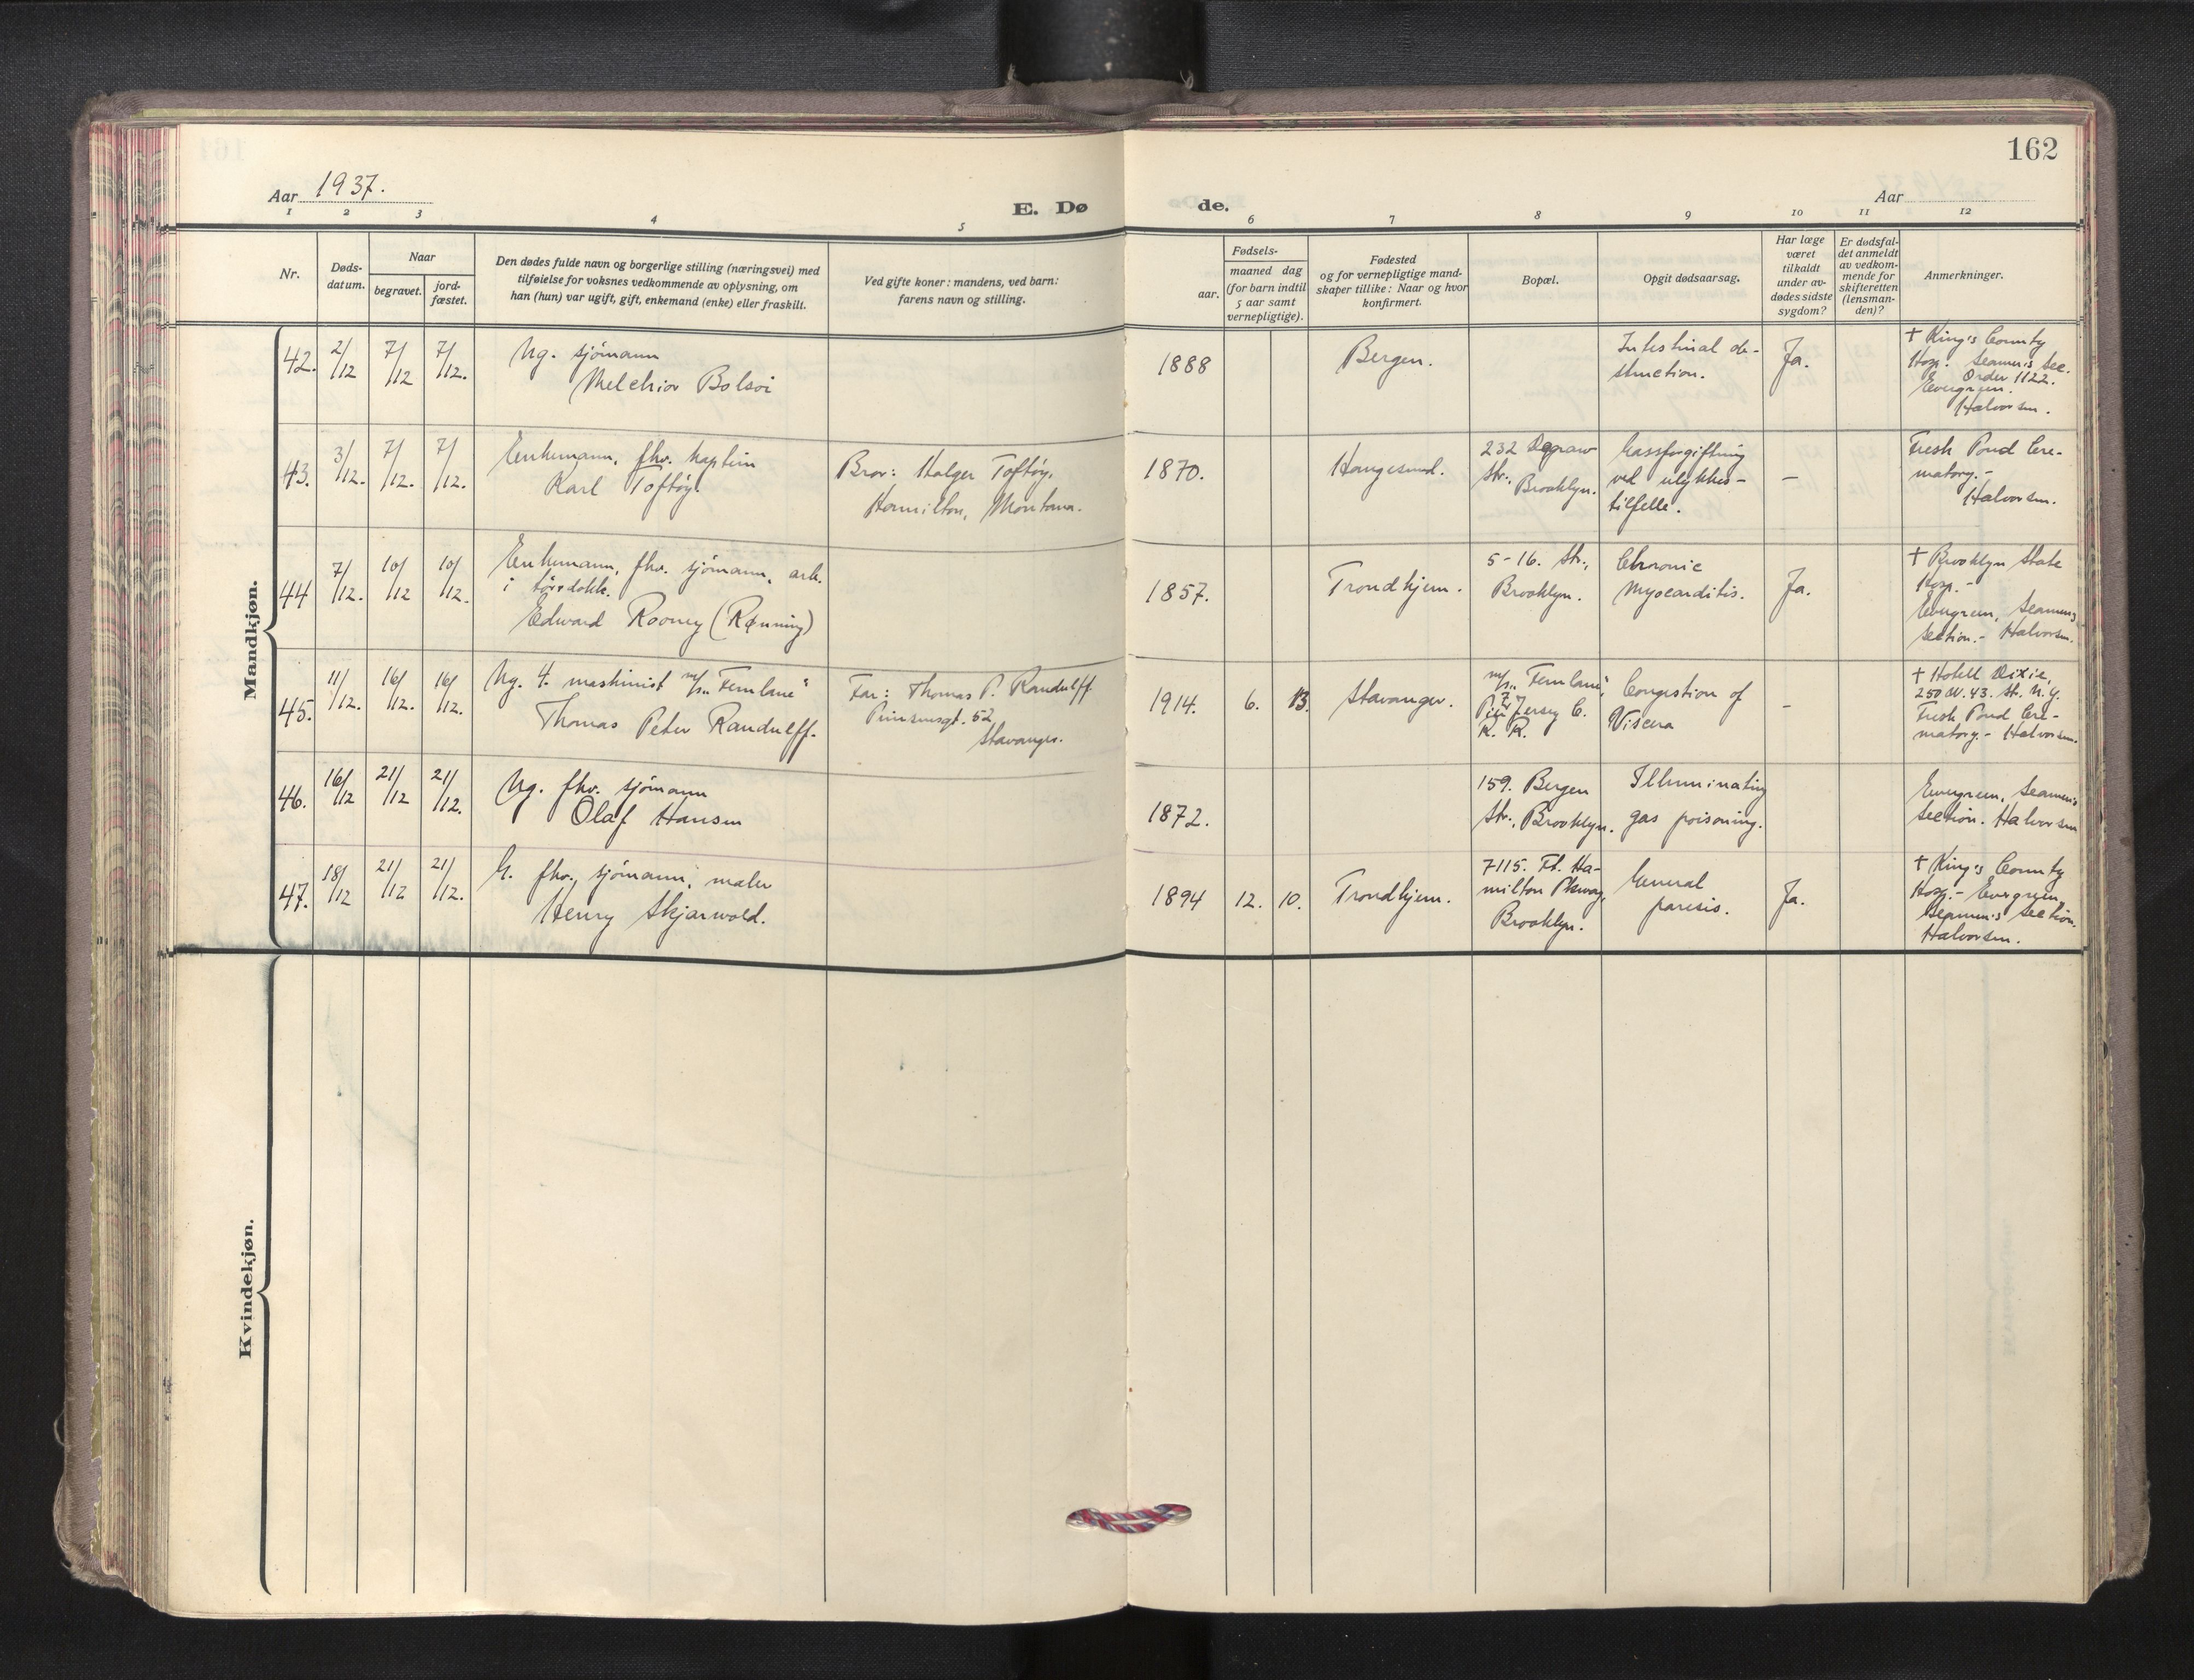 162
Aar 1937.
E. Dø
de.
Aar
1 2 3 4 5 6 7 8 9 10 11 12
Nr.
Døds-
datum.
Naar
begravet.
jord-
fæstet.
Den dødes fulde navn og borgerlige stilling (næringsvei) med
tilføielse for voksnes vedkommende av oplysning, om
han (hun) var ugift, gift, enkemand (enke) eller fraskilt.
Ved gifte koner: mandens, ved barn:
farens navn og stilling.
Fødsels-
aar.
maaned dag
(for barn indtil
5 aar samt
vernepligtige).
Fødested
og for vernepligtige mand-
skaper tillike: Naar og hvor
konfirmert.
Bopæl.
Opgit dødsaarsag.
Har læge
været
tilkaldt
under av-
dødes sidste
sygdom?
Er dødsfal-
det anmeldt
av vedkom-
mende for
skifteretten
(lensman-
den)?
Anmerkninger.
Mandkjøn.
42. 2/12 7/12 7/12.
Ug. sjömann
Melchior Bolsoi
1888
Bergen.
Intestinal de-
struction.
Ja.
† King's County
Hosp. Seamen's Sec.
Order 1122.
Evergreen.
Halvorsen.
43. 3/12. 7/12. 7/12.
Enkemann, fhv. kaptein
Karl Toftöy.
Bror: Holger Toftöy,
Hamilton, Montana.
1870.
Haugesund.
232 Degraw
Str., Brooklyn.
Gassforgiftning
ved ulykkes-
tilfelle.
—
Fresh Pond Cre-
matory.-
Halvorsen.
44 7/12. 10/12 10/12.
Enkemann, fhv. sjömann, arb.
i törrdokk.
Edward Rooney (Rønning)
1857.
Trondhjem.
5-16. Str.,
Brooklyn.
Chronic
Myocarditis.
Ja.
† Brooklyn State
Hosp.-
Evergreen, Seamen's
Section.- Halvorsen.
45. 11/12. 16/12. 16/12.
Ug. 4. maskinist m/s „Fernlane"
Thomas Peter Randulff.
Far: Thomas P. Randulff
Prinsensgt. 52
Stavanger.
1914. 6. 13.
Stavanger.
m/s „Fernlane",
Pier 7 Jersey C.
R. R.
Congestion of
Viscera
-
† Hotell Dixie,
250 W. 43. St. N.Y.
Fresh Pond Cre-
matory.- Halvorsen.
46. 16/12 21/12 21/12.
Ug. fhv. sjömann
Olaf Hansen
1872.
159. Bergen
Str., Brooklyn.
Illuminating
gas poisoning.
Evergreen, Seamen's
Section. Halvorsen
47. 18/12 21/12 21/12.
G. fhv. sjömann, maler
Henry Skjarwold.
1894 12. 10.
Trondhjem.
7115. Ft. Ha-
milton Pkway,
Brooklyn.
General
paresis.
Ja.
† King's County
Hosp.- Evergreen
Seamen's Section.
Halvorsen.
Kvindekjøn.